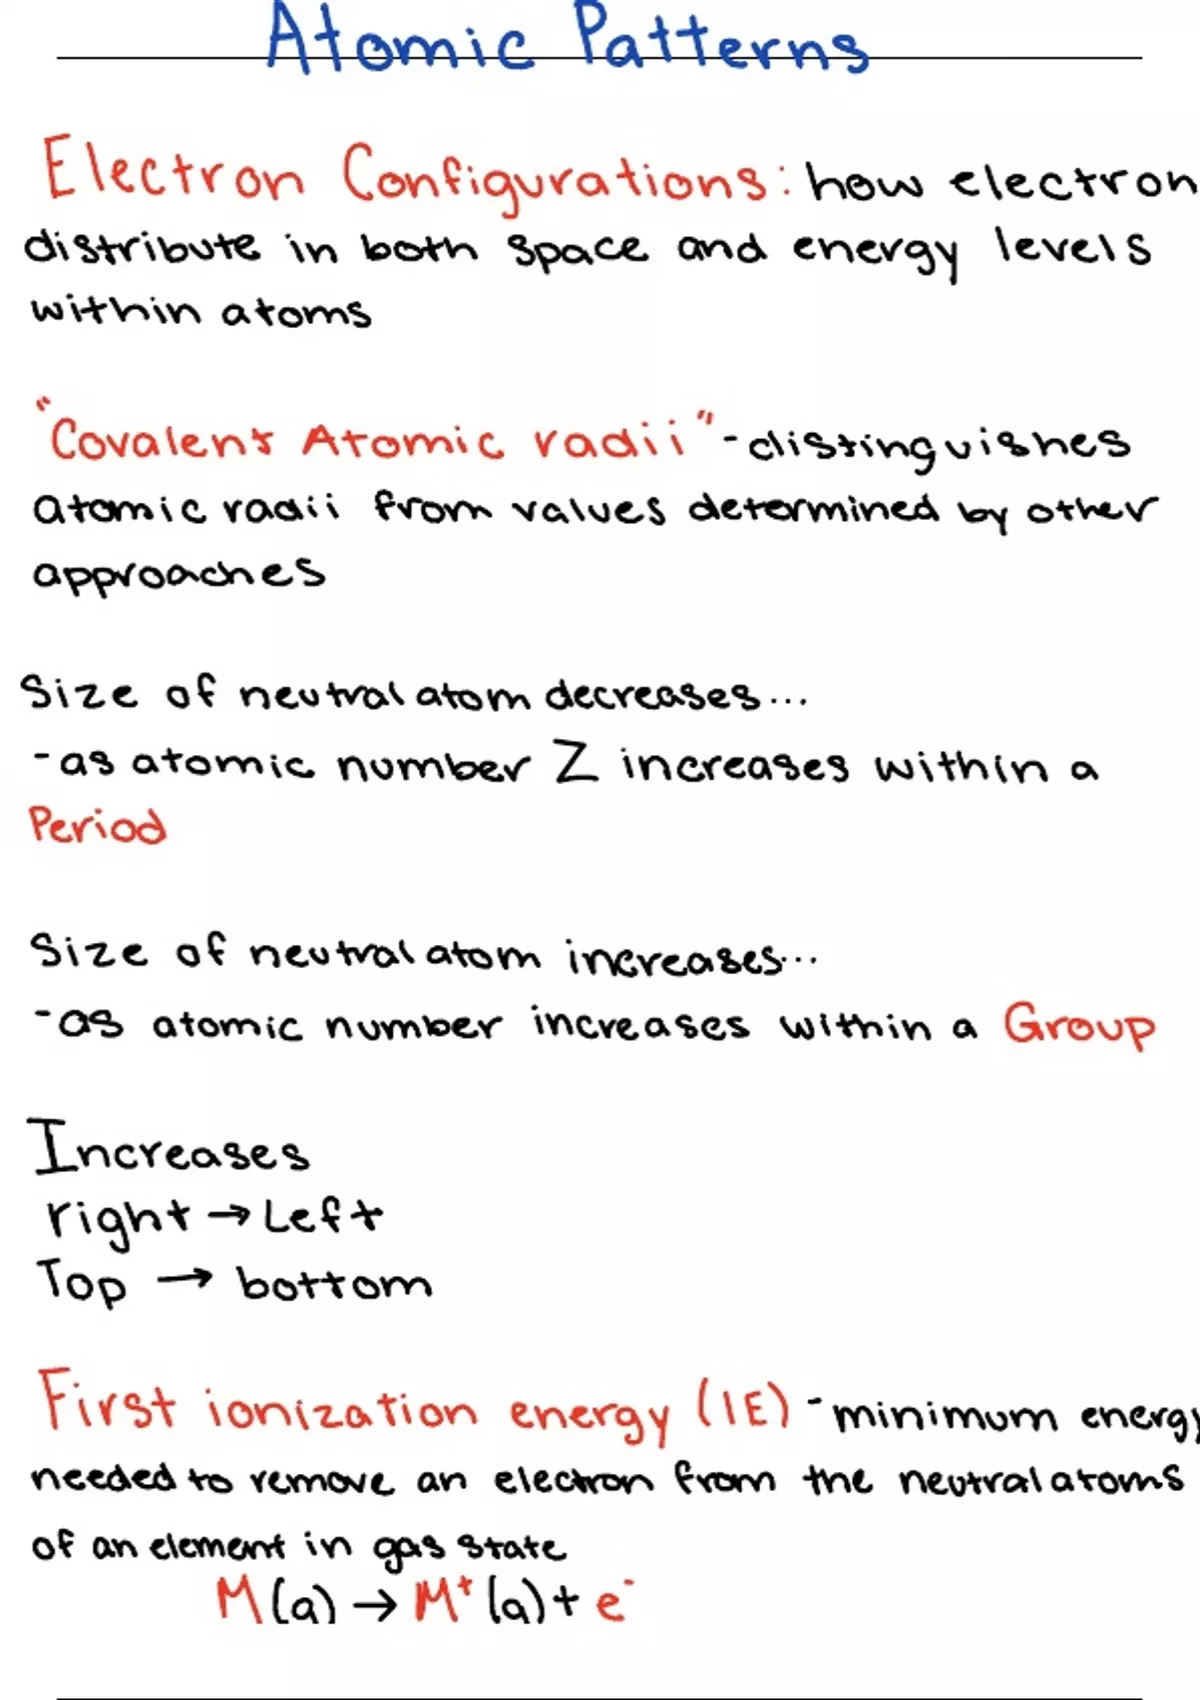 Atomic Patterns
Electron Configurations: how electron
distribute in both space and energy levels
within atoms
"Covalent Atomic radii" - distinguishes
atomic radii from values determined by other
approaches
Size of neutral atom decreases...
- as atomic number Z increases within a
Period
Size of neutral atom increases...
- as atomic number increases within a Group
Increases
right → Left
Top → bottom
First ionization energy (IE) - minimum energy
needed to remove an electron from the neutral atoms
of an element in gas state
M(a) → M⁺(a) + e⁻